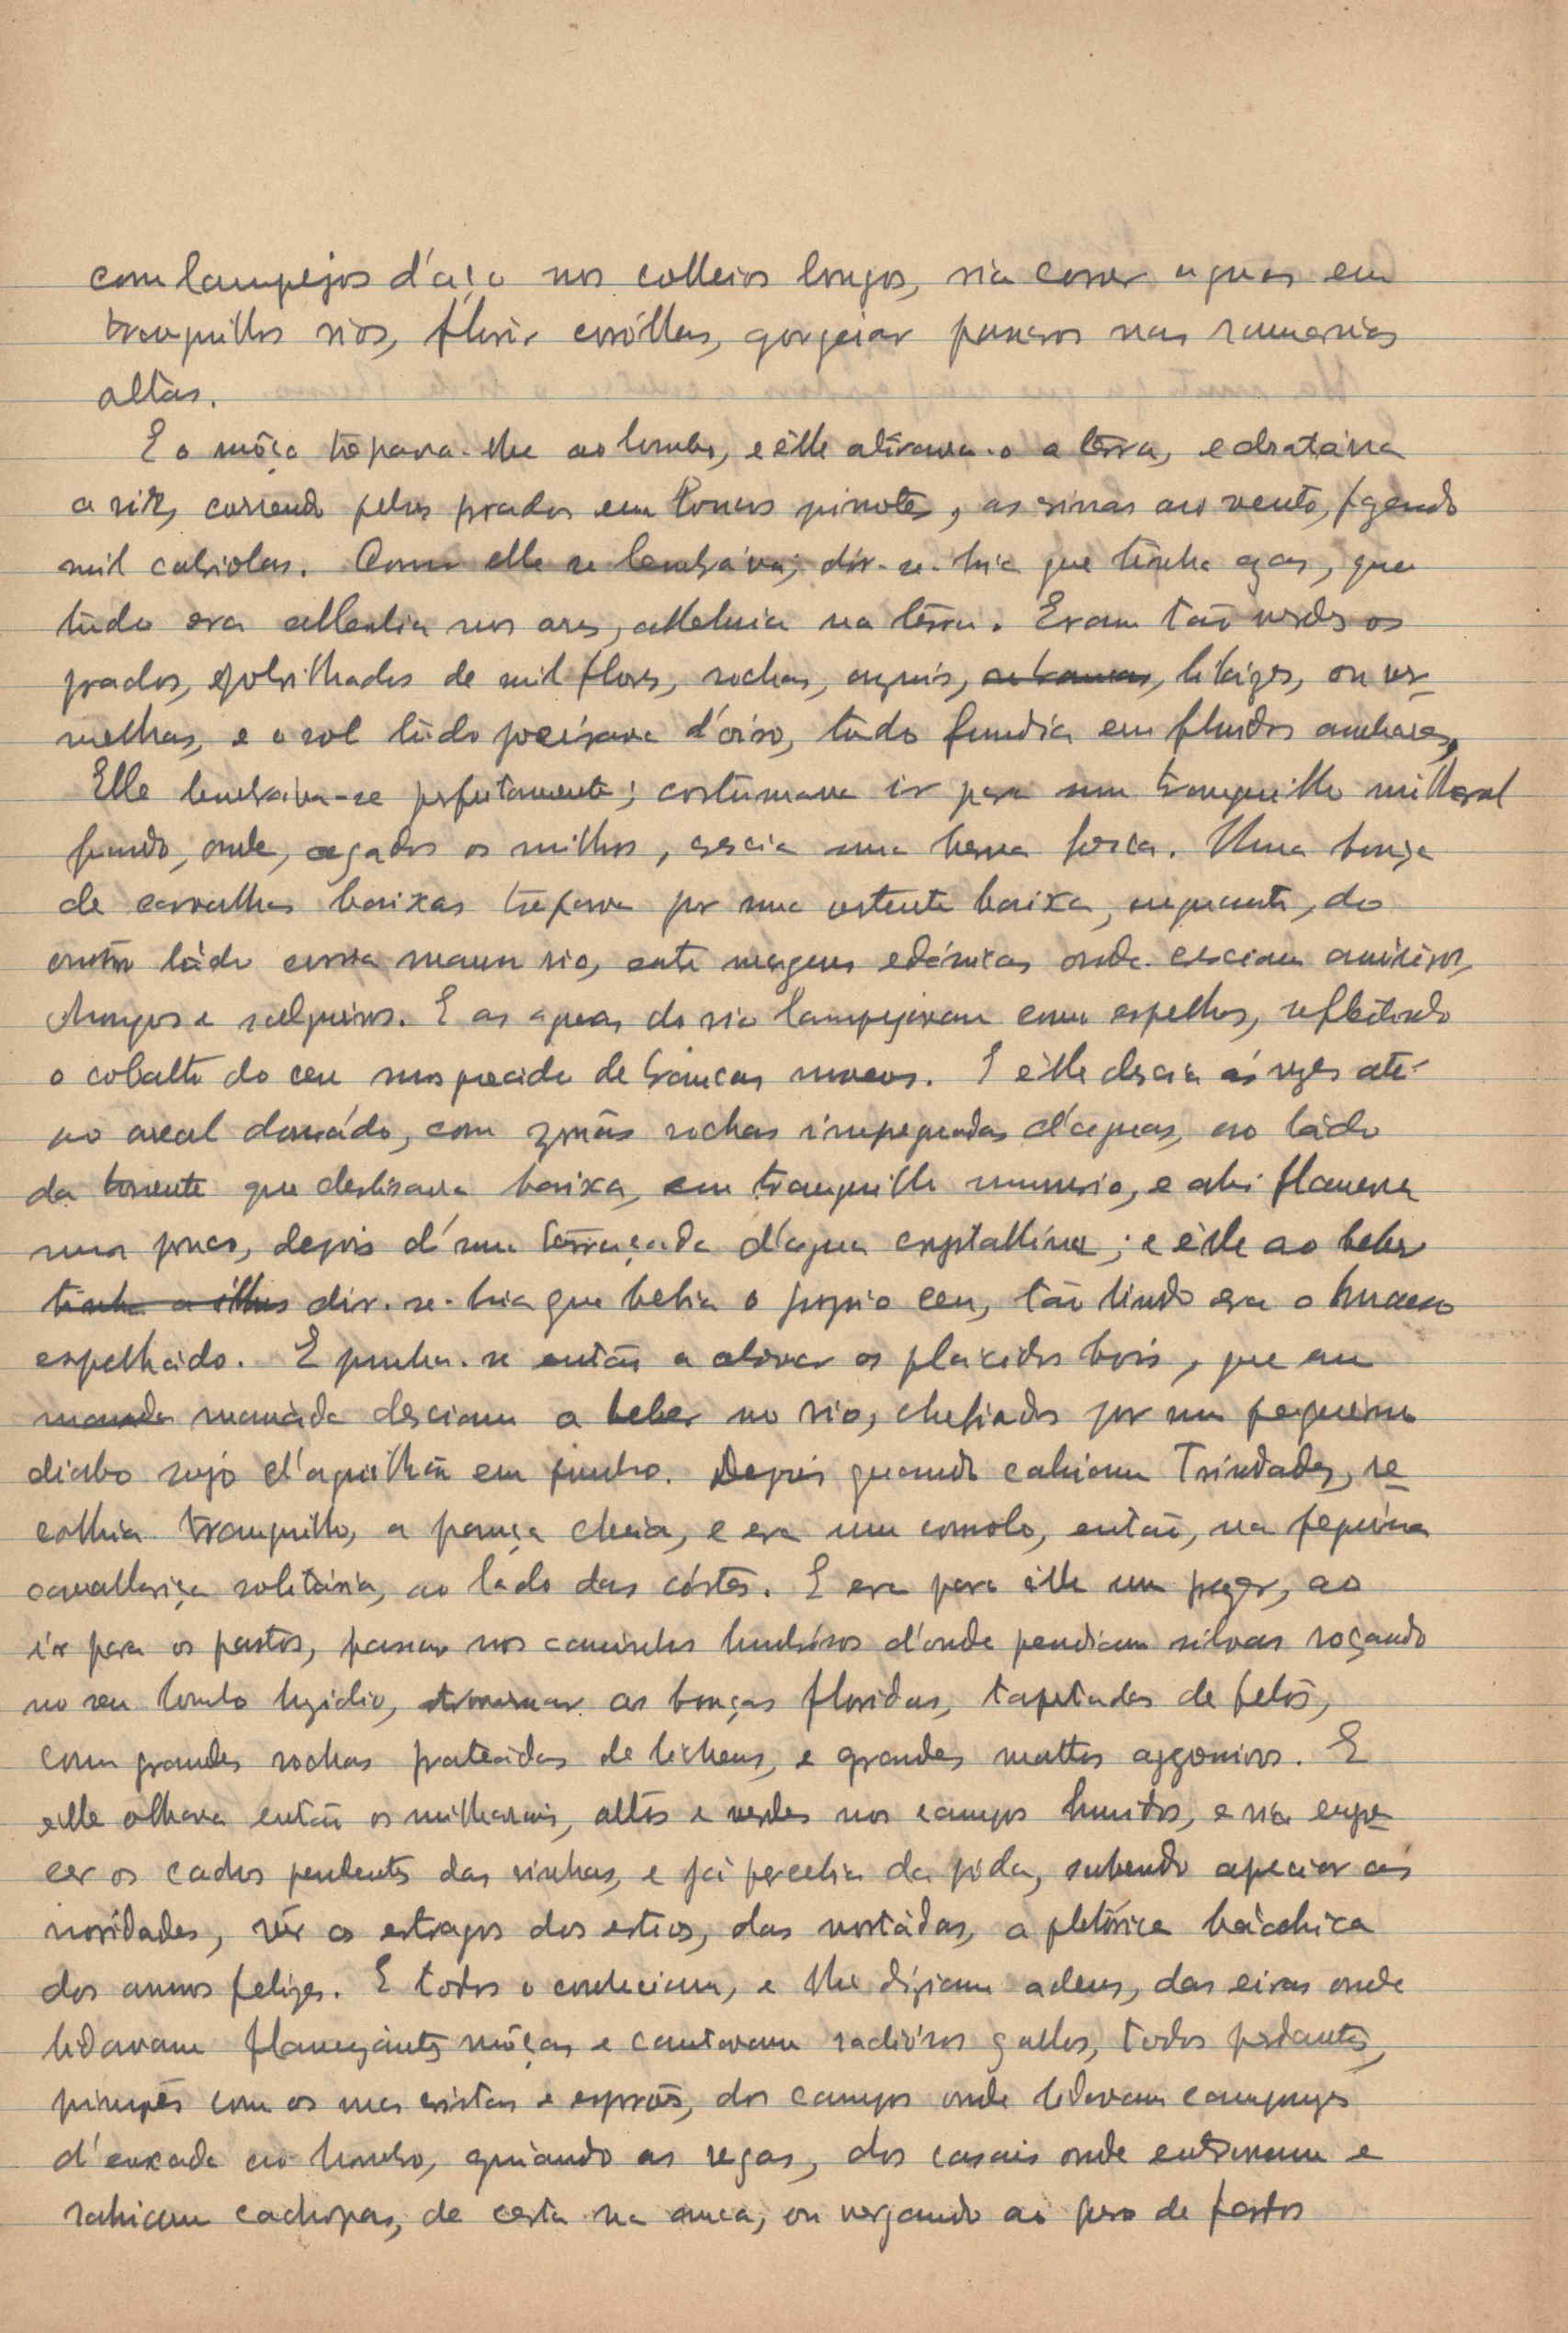 com lampejos d'aço nos colleios longos, via correr aguas em
tranquillos rios, florir coróllas, gorgeiar passaros nas ramarias
altas.
E o môço trepava-lhe ao lombo, e êlle atirava-o a terra, e desatáva
a rir, correndo pelos prados em loucos pinotes, as crinas ao vento, fazendo
mil cabriolas. Como elle se lembráva; dir-se-hia que tinha azas, que
tudo era alleluia nos ares, alleluia na terra. Eram tão verdes os
prados, polvilhados de mil flores, rochas, azuis, lilazes, ou ver-
melhas, e o sol tudo poeirava d'oiro, tudo fundia em fluidos ambares.
Elle lembrava-se perfeitamente; costumava ir para um tranquillo milharal
fundo, onde, segados os milhos, crescia uma herva fresca. Uma bouça
de carvalhas baixas trepava por uma vertente baixa, emquanto, do
outro lado corria manso rio, entre margens edénicas onde cresciam amieiros,
choupos e salgueiros. E as aguas do rio lampejavam como espelhos, reflectindo
o cobalto do ceu salpicado de brancas nuvens. E êlle descia ás vezes até
ao areal dourádo, com rochas impregnadas d'aguas, ao lado
da torrente que deslisava baixa, em tranquillo murmurio, e ahi flanava
um pouco, depois d'uma d'agua crystallina; e êlle ao beber
tinha a illus dir-se-hia que bebia o proprio ceu, tão lindo era o
espelhádo. E punha-se então a olhar os placidos bois, que em
manada manáda desciam a beber no rio, chefiados por um pequeno
diabo sujo d'aguilhão em punho. Depois quando cahiam Trindades, re-
colhia tranquillo, a pança cheia, e era um consolo, então, na pequena
cavallariça solitária, ao lado das córtes. E era para êlle um prazer, ao
ir para os pastos, passar nos caminhos umbrósos d'onde pendiam silvas roçando
no seu lombo luzidio, atravessar as bouças floridas, tapetadas de fetos,
com grandes rochas prateádas de lichens, e grandes mattos. E
elle olhava então os milharais, altos e verdes nos campos humidos, e via cres-
cer os cachos pendentes das vinhas, e já percebia da póda, sabendo apreciar as
novidades, vêr os estragos dos estios, das nortádas, a pletórica báchica
dos annos felizes. E todos o conheciam, e lhe diziam adeus, das eiras onde
lidavam môças e cantavam radiósos gallos, todos pedantes,
pimpões com as suas cristas e esporões, dos campos onde lidavam camponezes
d'enxada ao hombro, guiando as regas, dos casais onde entravam e
sahiam cachopas, de cesta na anca, ou vergando ao peso de fartos